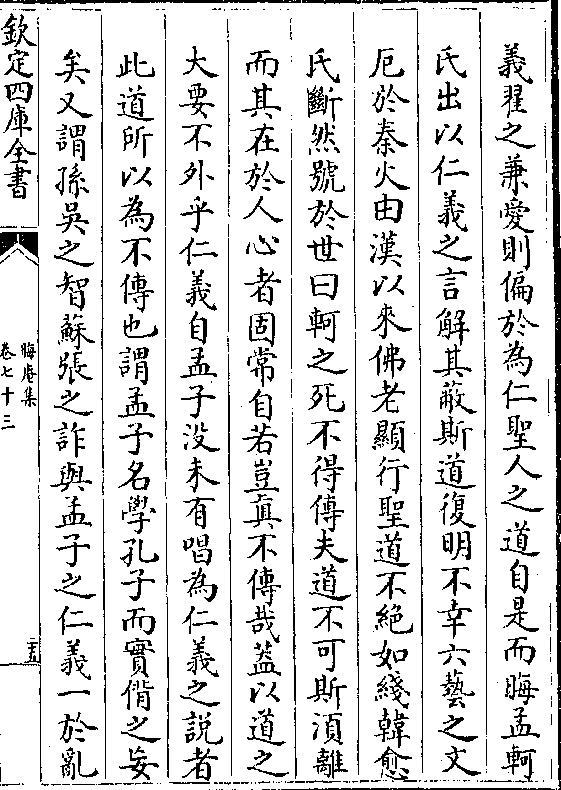 義翟之兼愛則偏於為仁聖人之道自是而晦孟軻
氏出以仁義之言解其蔽斯道復明不幸六藝之文
厄於秦火由漢以來佛老顯行聖道不絕如綫韓愈
氏斷然號於世曰軻之死不得傳夫道不可斯湏離
而其在於人心者固常自若豈真不傳哉葢以道之
大要不外乎仁義自孟子沒未有唱為仁義之説者
此道所以為不傳也謂孟子名學孔子而實偝之妄
矣又謂孫吳之智蘇張之詐與孟子之仁義一於亂
欽定四庫全書
晦庵集
卷七十三
二五